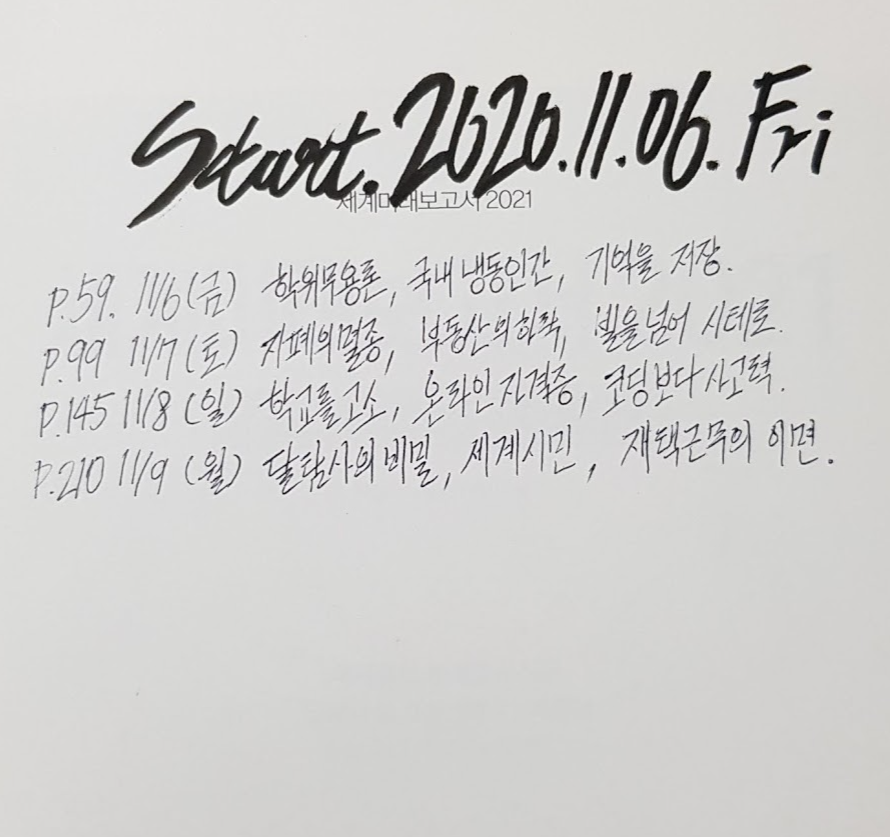 Start. 2020.11.06. Fri
세계미래보고서 2021
P.59. 11/6 (금) 학위무용론, 국내 냉동인간, 기억을 저장.
P.99 11/7 (토) 지폐의 멸종, 부동산의 하락, 빌을 넘어 시테로.
P.145 11/8 (일) 학교를 고소, 온라인 자격증, 코딩보다 사고력.
P.210 11/9 (월) 달탐사의 비밀, 세계시민, 재택근무의 이면.